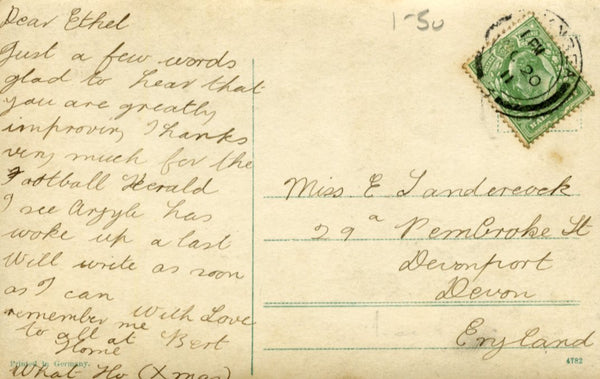 Dear Ethel
Just a few words
glad to hear that
you are greatly
improving Thanks
very much for the
Football Herald
I see Argyle has
woke up a last
Will write as soon
as I can
remember me With Love
to all at Bert
Home
What Ho (Xmas)
1-50
1 PM
20
11
Miss E Sandercock
29a Pembroke St
Devonport
Devon
England
Printed in Germany.
4782